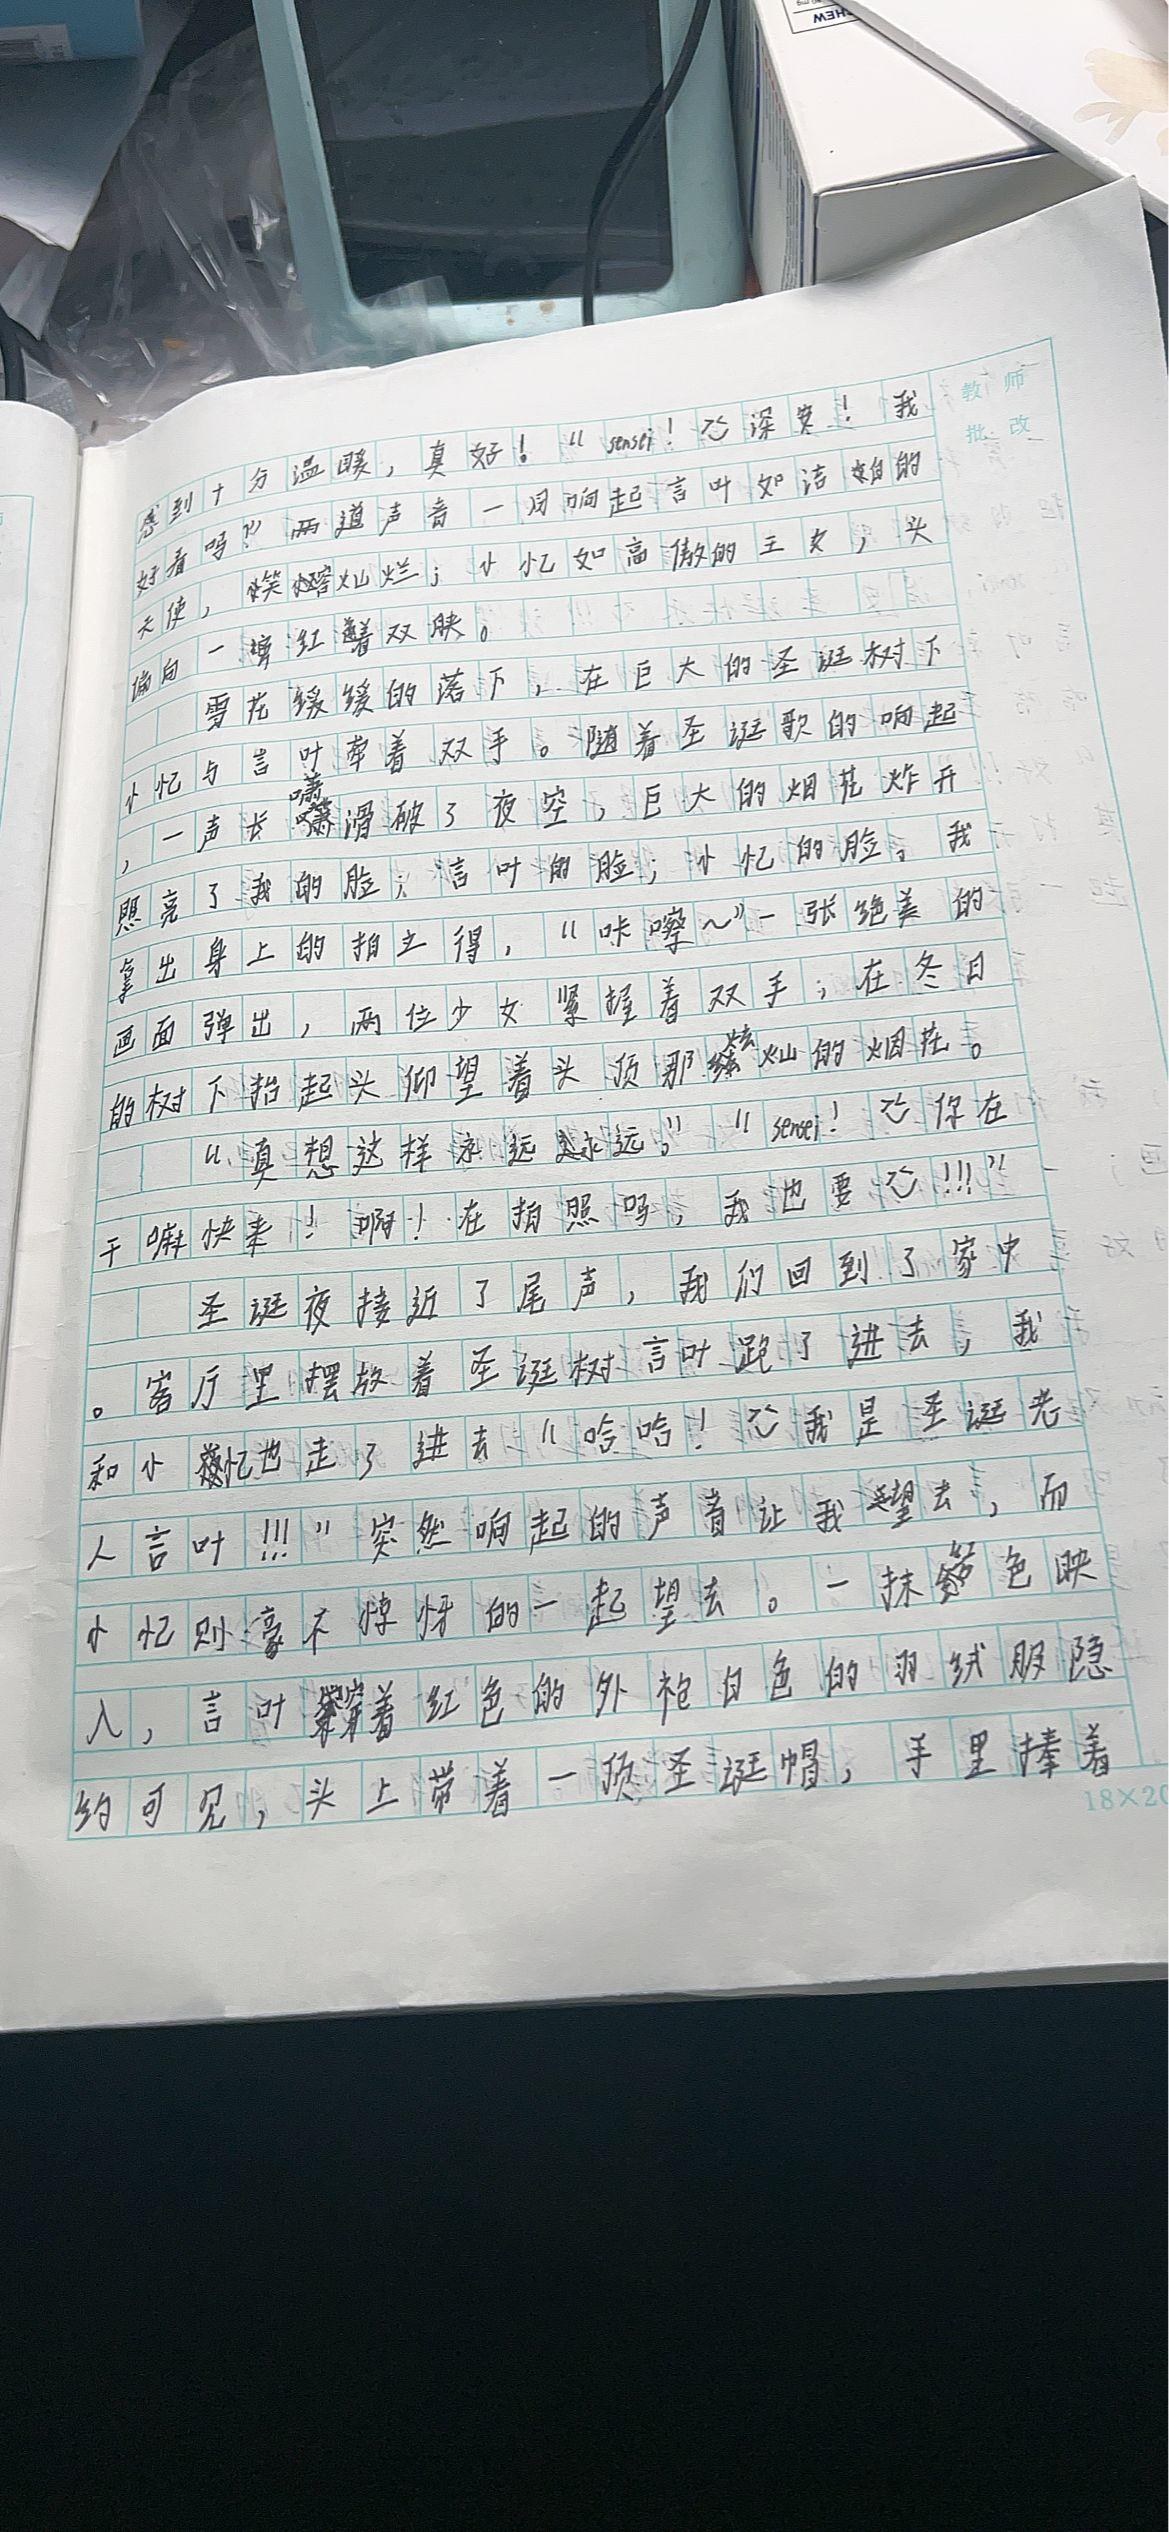 HEW
教师
批改
感到十分温暖，真好！“sensei！深安！我
好看吗？”两道声音一同响起言叶如洁白的
天使，笑容灿烂；小忆如高傲的王女，头
偏向一旁红着双脸。
雪花缓缓的落下，在巨大的圣诞树下
小忆与言叶牵着双手。随着圣诞歌的响起
，一声长啸滑破了夜空，巨大的烟花炸开
照亮了我的脸；言叶的脸；小忆的脸。我
拿出身上的拍立得，“咔嚓～”一张绝美的
画面弹出，两位少女紧握着双手；在冬日
的树下抬起头仰望着头顶那炫灿的烟花。
“真想这样永远永远。”“sensei！你在
干嘛快来！啊！在拍照吗，我也要!!!”
圣诞夜接近了尾声，我们回到了家中
。客厅里摆放着圣诞树言叶跑了进去，我
和小忆也走了进去“哈哈！我是圣诞老
人言叶!!!”突然响起的声音让我望去，而
小忆则豪不惊讶的一起望去。一抹红色映
入，言叶穿着红色的外袍白色的羽绒服隐
约可见，头上带着一顶圣诞帽，手里捧着
18×20